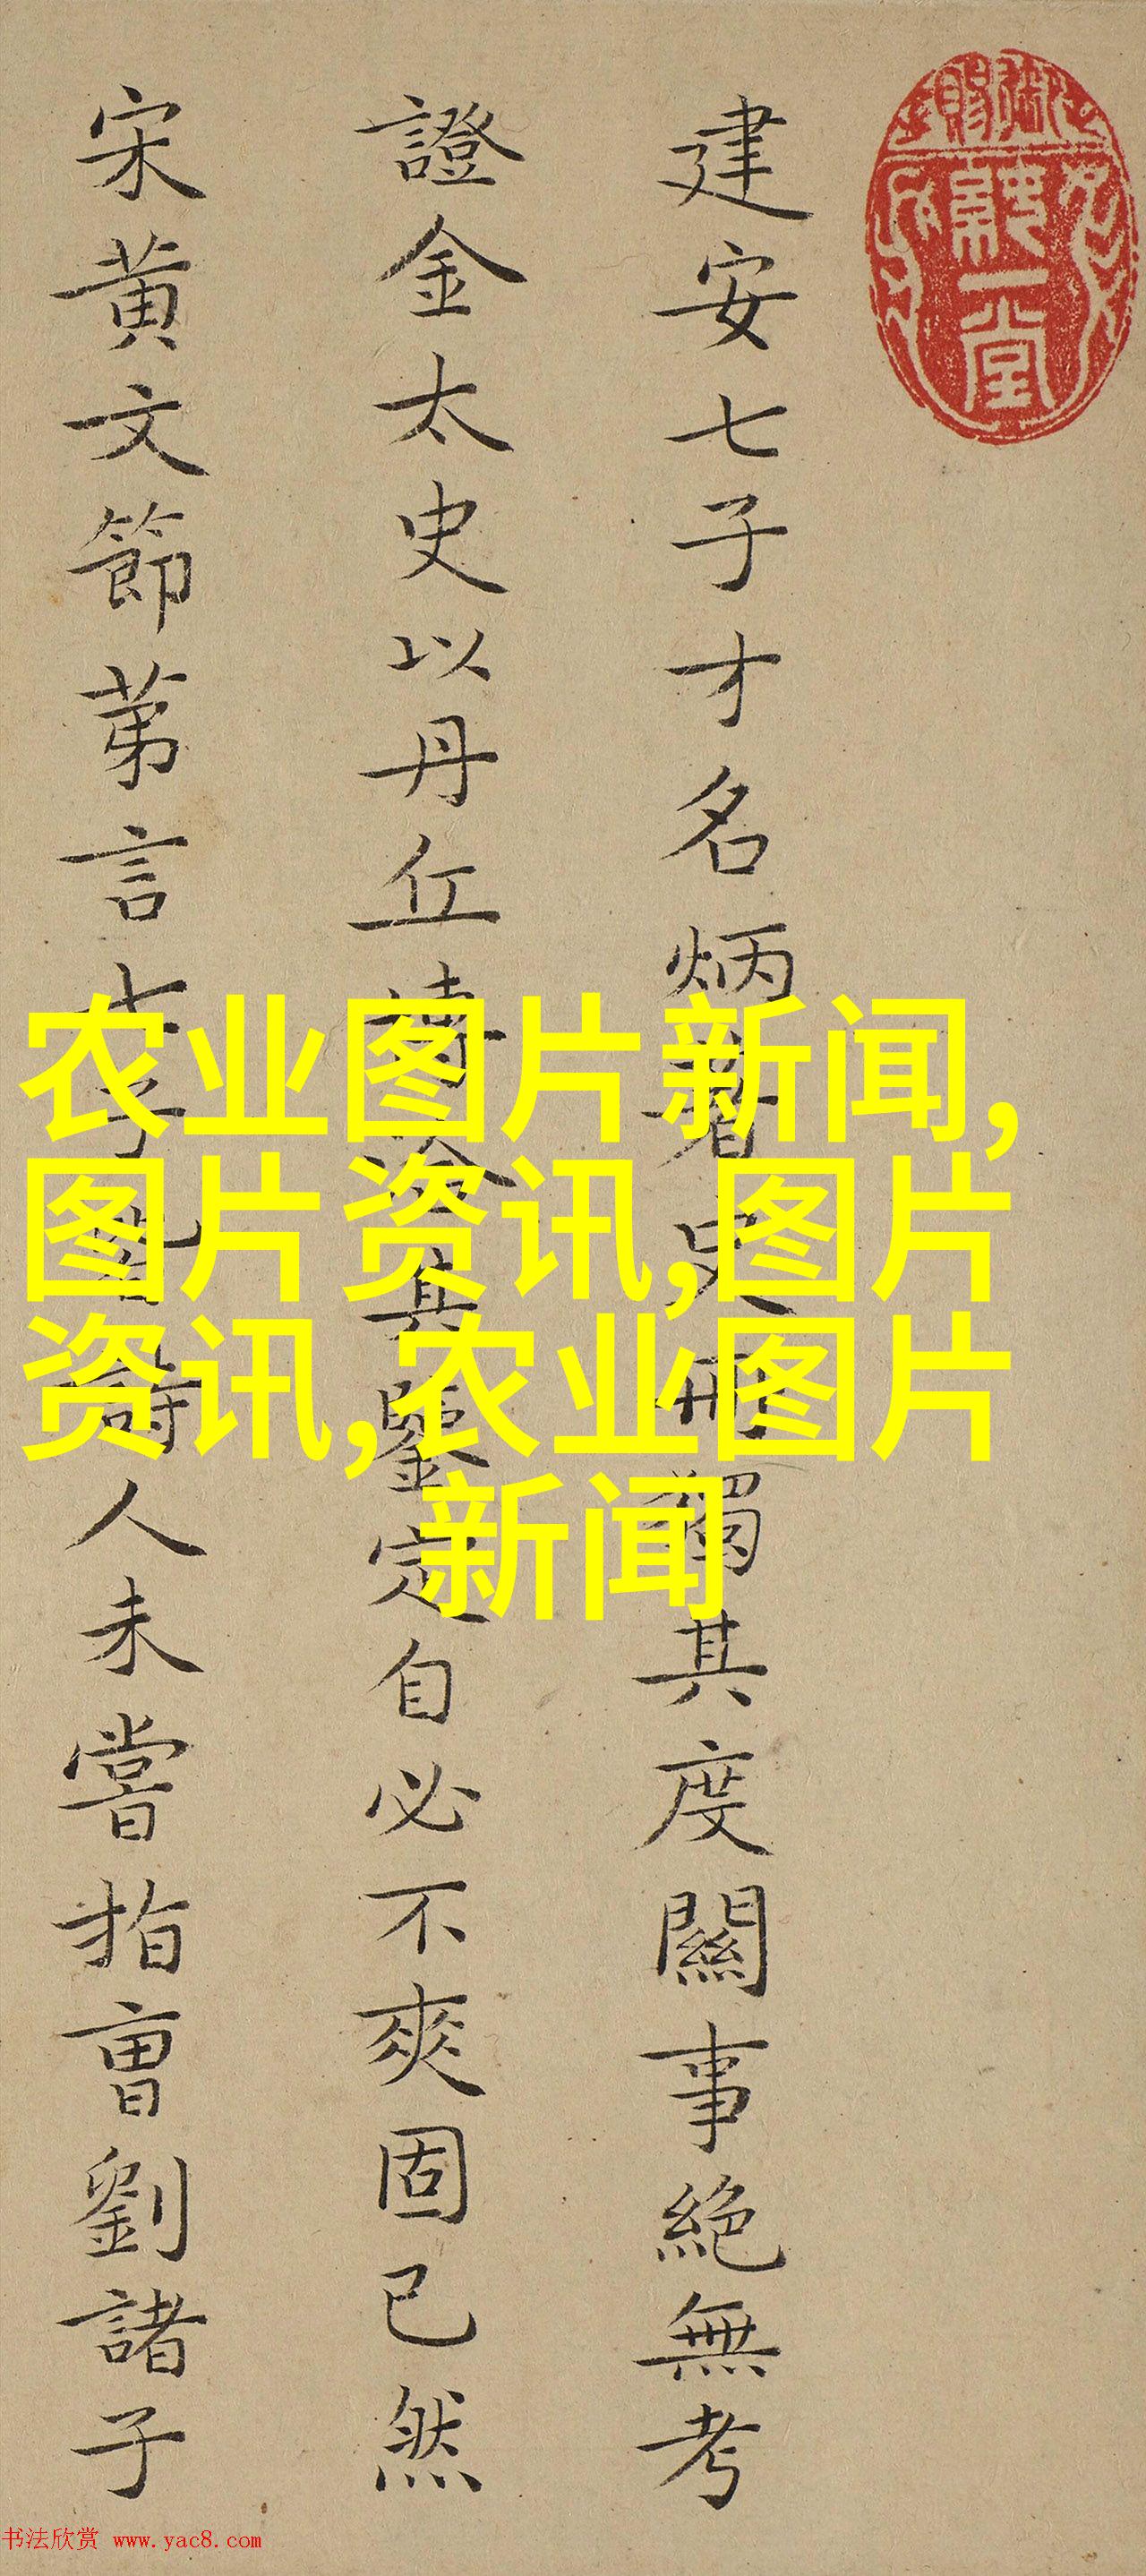 建安七子才名炳著史冊獨其度關事絕無考
證金太史以丹丘博洽其鑒定自必不爽固已然
宋黃文節苐言七子詩人未嘗指曹劉諸子
農业图片新闻,
图片资讯,图片
资讯,农业图片
新闻
书法欣赏 www.yac8.com